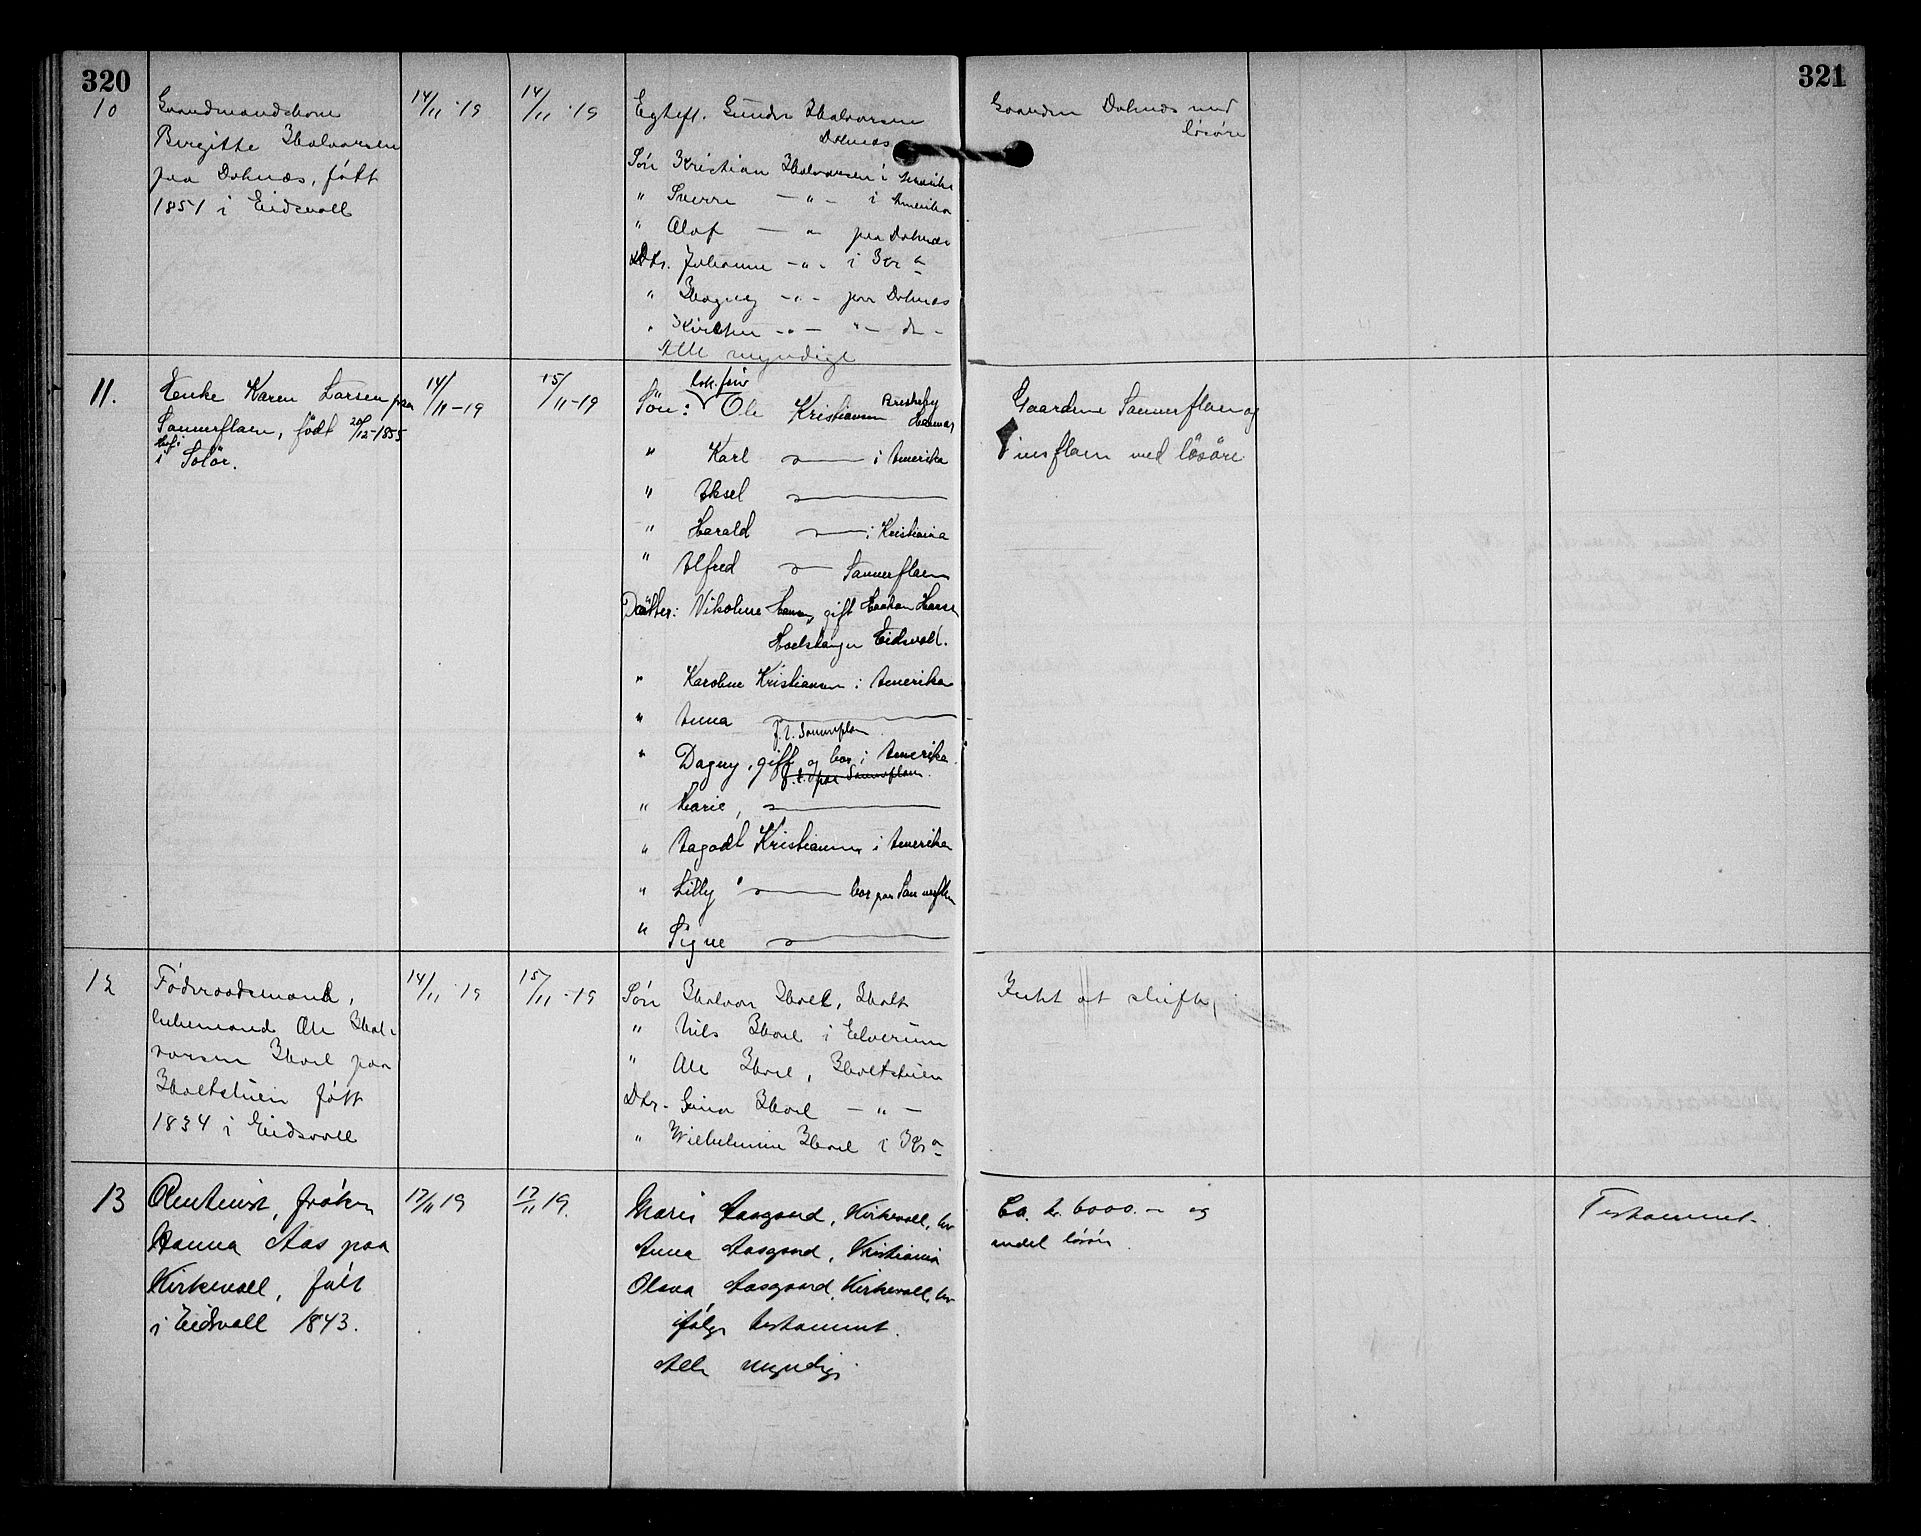 320
10
Gaardmandskone
Birgitte Halvorsen
paa Dolnæs, født
1851 i Eidsvoll
14/11-19
14/11-19
Egtefl. Gunder Halvorsen
Dolnæs
Søn Kristian Halvorsen i Amerika
" Sverre — " — i Amerika
" Olaf — " paa Dolnæs
Dtr. Johanne — " - i Kr a
" Hagny — " - paa Dolnæs
" Kirsten — " — " — do -
Alle myndige
Gaarden Dolnæs med
løsøre
11.
Enke Karen Larsen paa
Sannerflaen, født 20/12-1855
Hof i
i Solör.
14/11-19
15/11-19
Søn: Ole Kristiansen
Hamar
" Karl — i Amerika
" Aksel —
" Harald — i Kristiania
" Alfred — Sannerflaen
Døtter: Nikoline Hansen, gift Haakon Hansen
Eidsvold.
" Karoline Kristiansen i Amerika
" Anna —
f. t. Sannerflaen
" Dagny, gift og bor i Amerika.
f. t. paa Sannerflaen.
" Marie, —
" Kristiansen i Amerika
" Lilly " — bor paa Sannerflaen
" Signe —
Gaardene Sannerflaen og
med løsøre
12
Föderaadsmand,
enkemand Ole Hal-
vorsen Hoel paa
Holtstuen født
1834 i Eidsvoll
14/11-19
15/11-19
Søn Halvor Hoel, Holt
" Nils Hoel i Elverum
" Ole Hoel, Holtstuen
Dtr. Gina Hoel — " —
" Wilhelmine Hoel i Kr a
Intet at skifte,
13
Rentenist, frøken
Hanna Aas paa
Kirkevoll, født
i Eidsvoll 1843.
17/11 19
17/11 19.
Maria Aasgaard, Kirkevoll,
Anna Aasgaard, Kristiania
Olava Aasgaard, Kirkevoll,
ifølge testament.
Alle myndige
Ca. kr. 6000.- og
endel løsøre.
Testament.
321